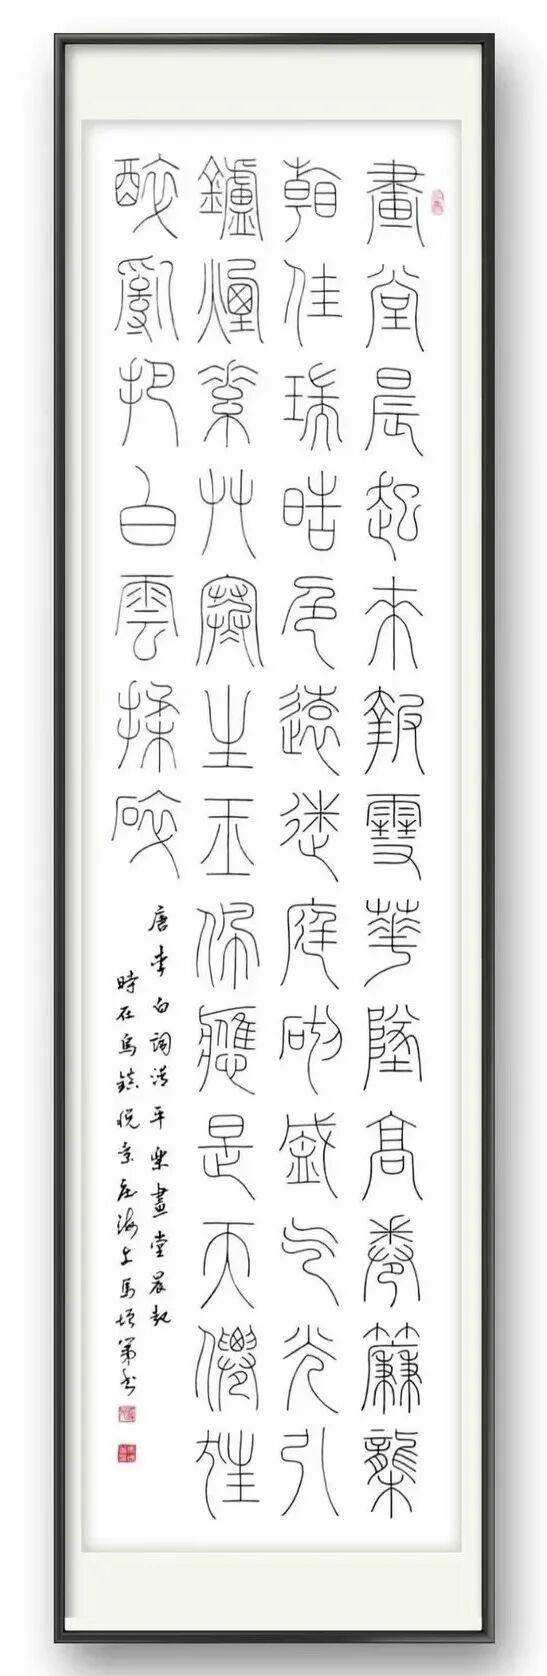 畫堂晨起來報雪華墜高卷簾櫳
看佳瑞晧色遠迷庭砌盛气光引
鑪煙素艸寒生玉佩應是天僊狂
醉亂把白雲揉碎
唐李白詞清平樂畫堂晨起
時在烏鎮悅景莊海上馬書